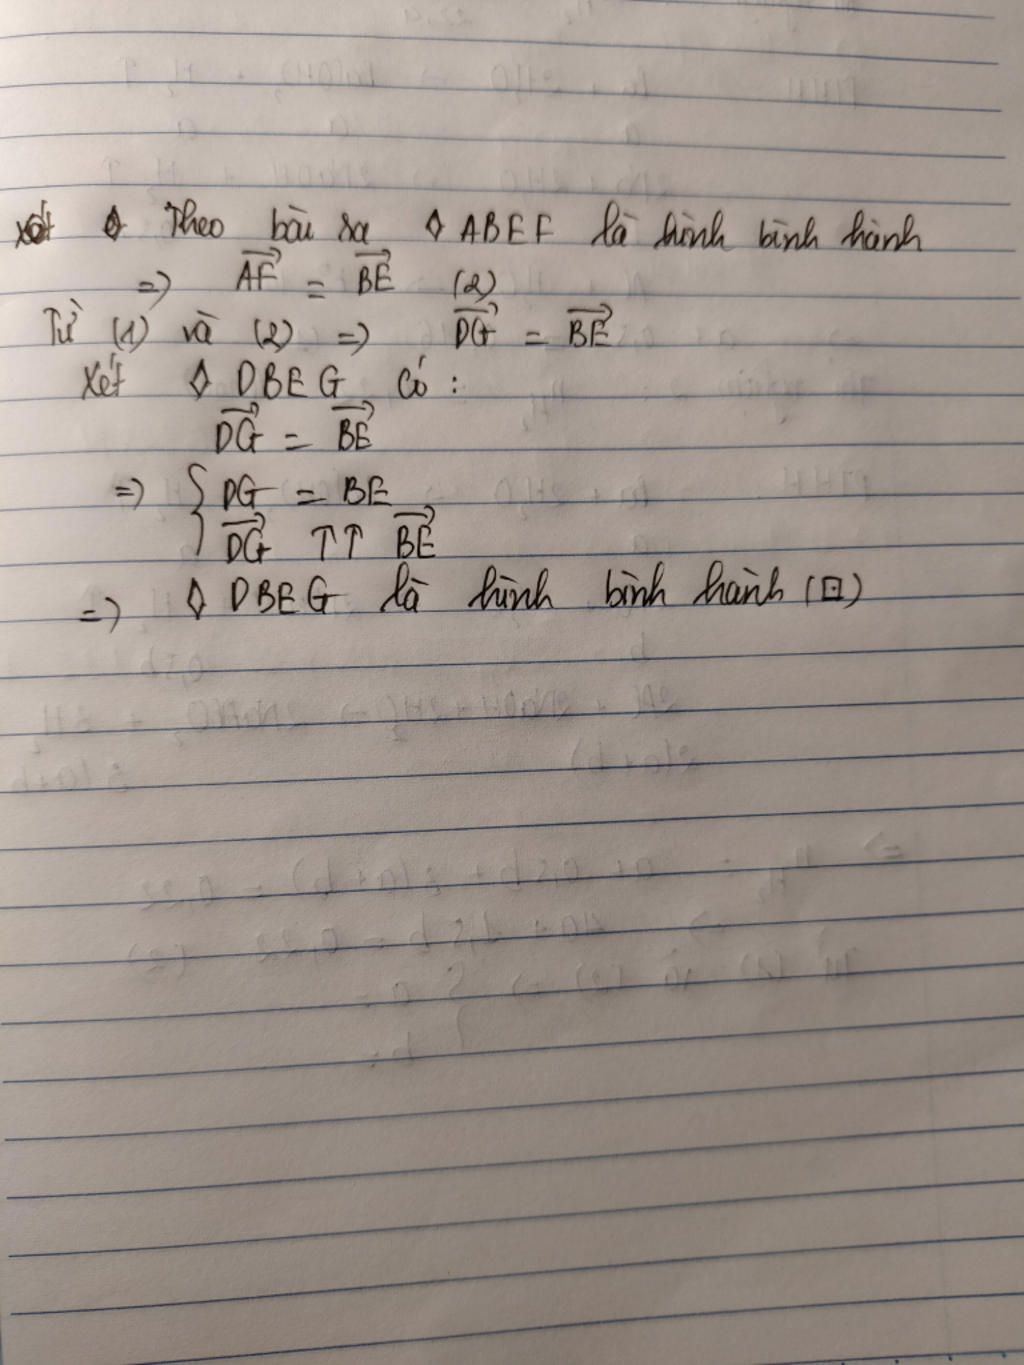 ◊ Theo bài ra ◊ ABEF là hình bình hành
=> $\overrightarrow{AF}$ = $\overrightarrow{BE}$ (2)
Từ (1) và (2) => $\overrightarrow{DG}$ = $\overrightarrow{BE}$
Xét ◊ DBEG có :
$\overrightarrow{DG}$ = $\overrightarrow{BE}$
=> { DG = BE
$\overrightarrow{DG}$ ↑↑ $\overrightarrow{BE}$
=> ◊ DBEG là hình bình hành (⊡)